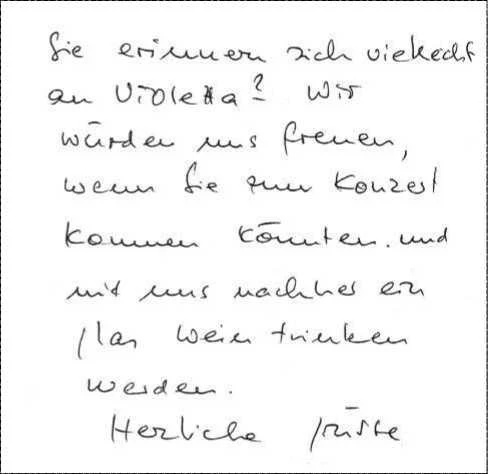 Sie erinnern sich vielleicht
an Violetta? Wir
würden uns freuen,
wenn Sie zum Konzert
kommen könnten. und
mit uns nachher ein
Glas Wein trinken
werden.
Herzliche Grüsse